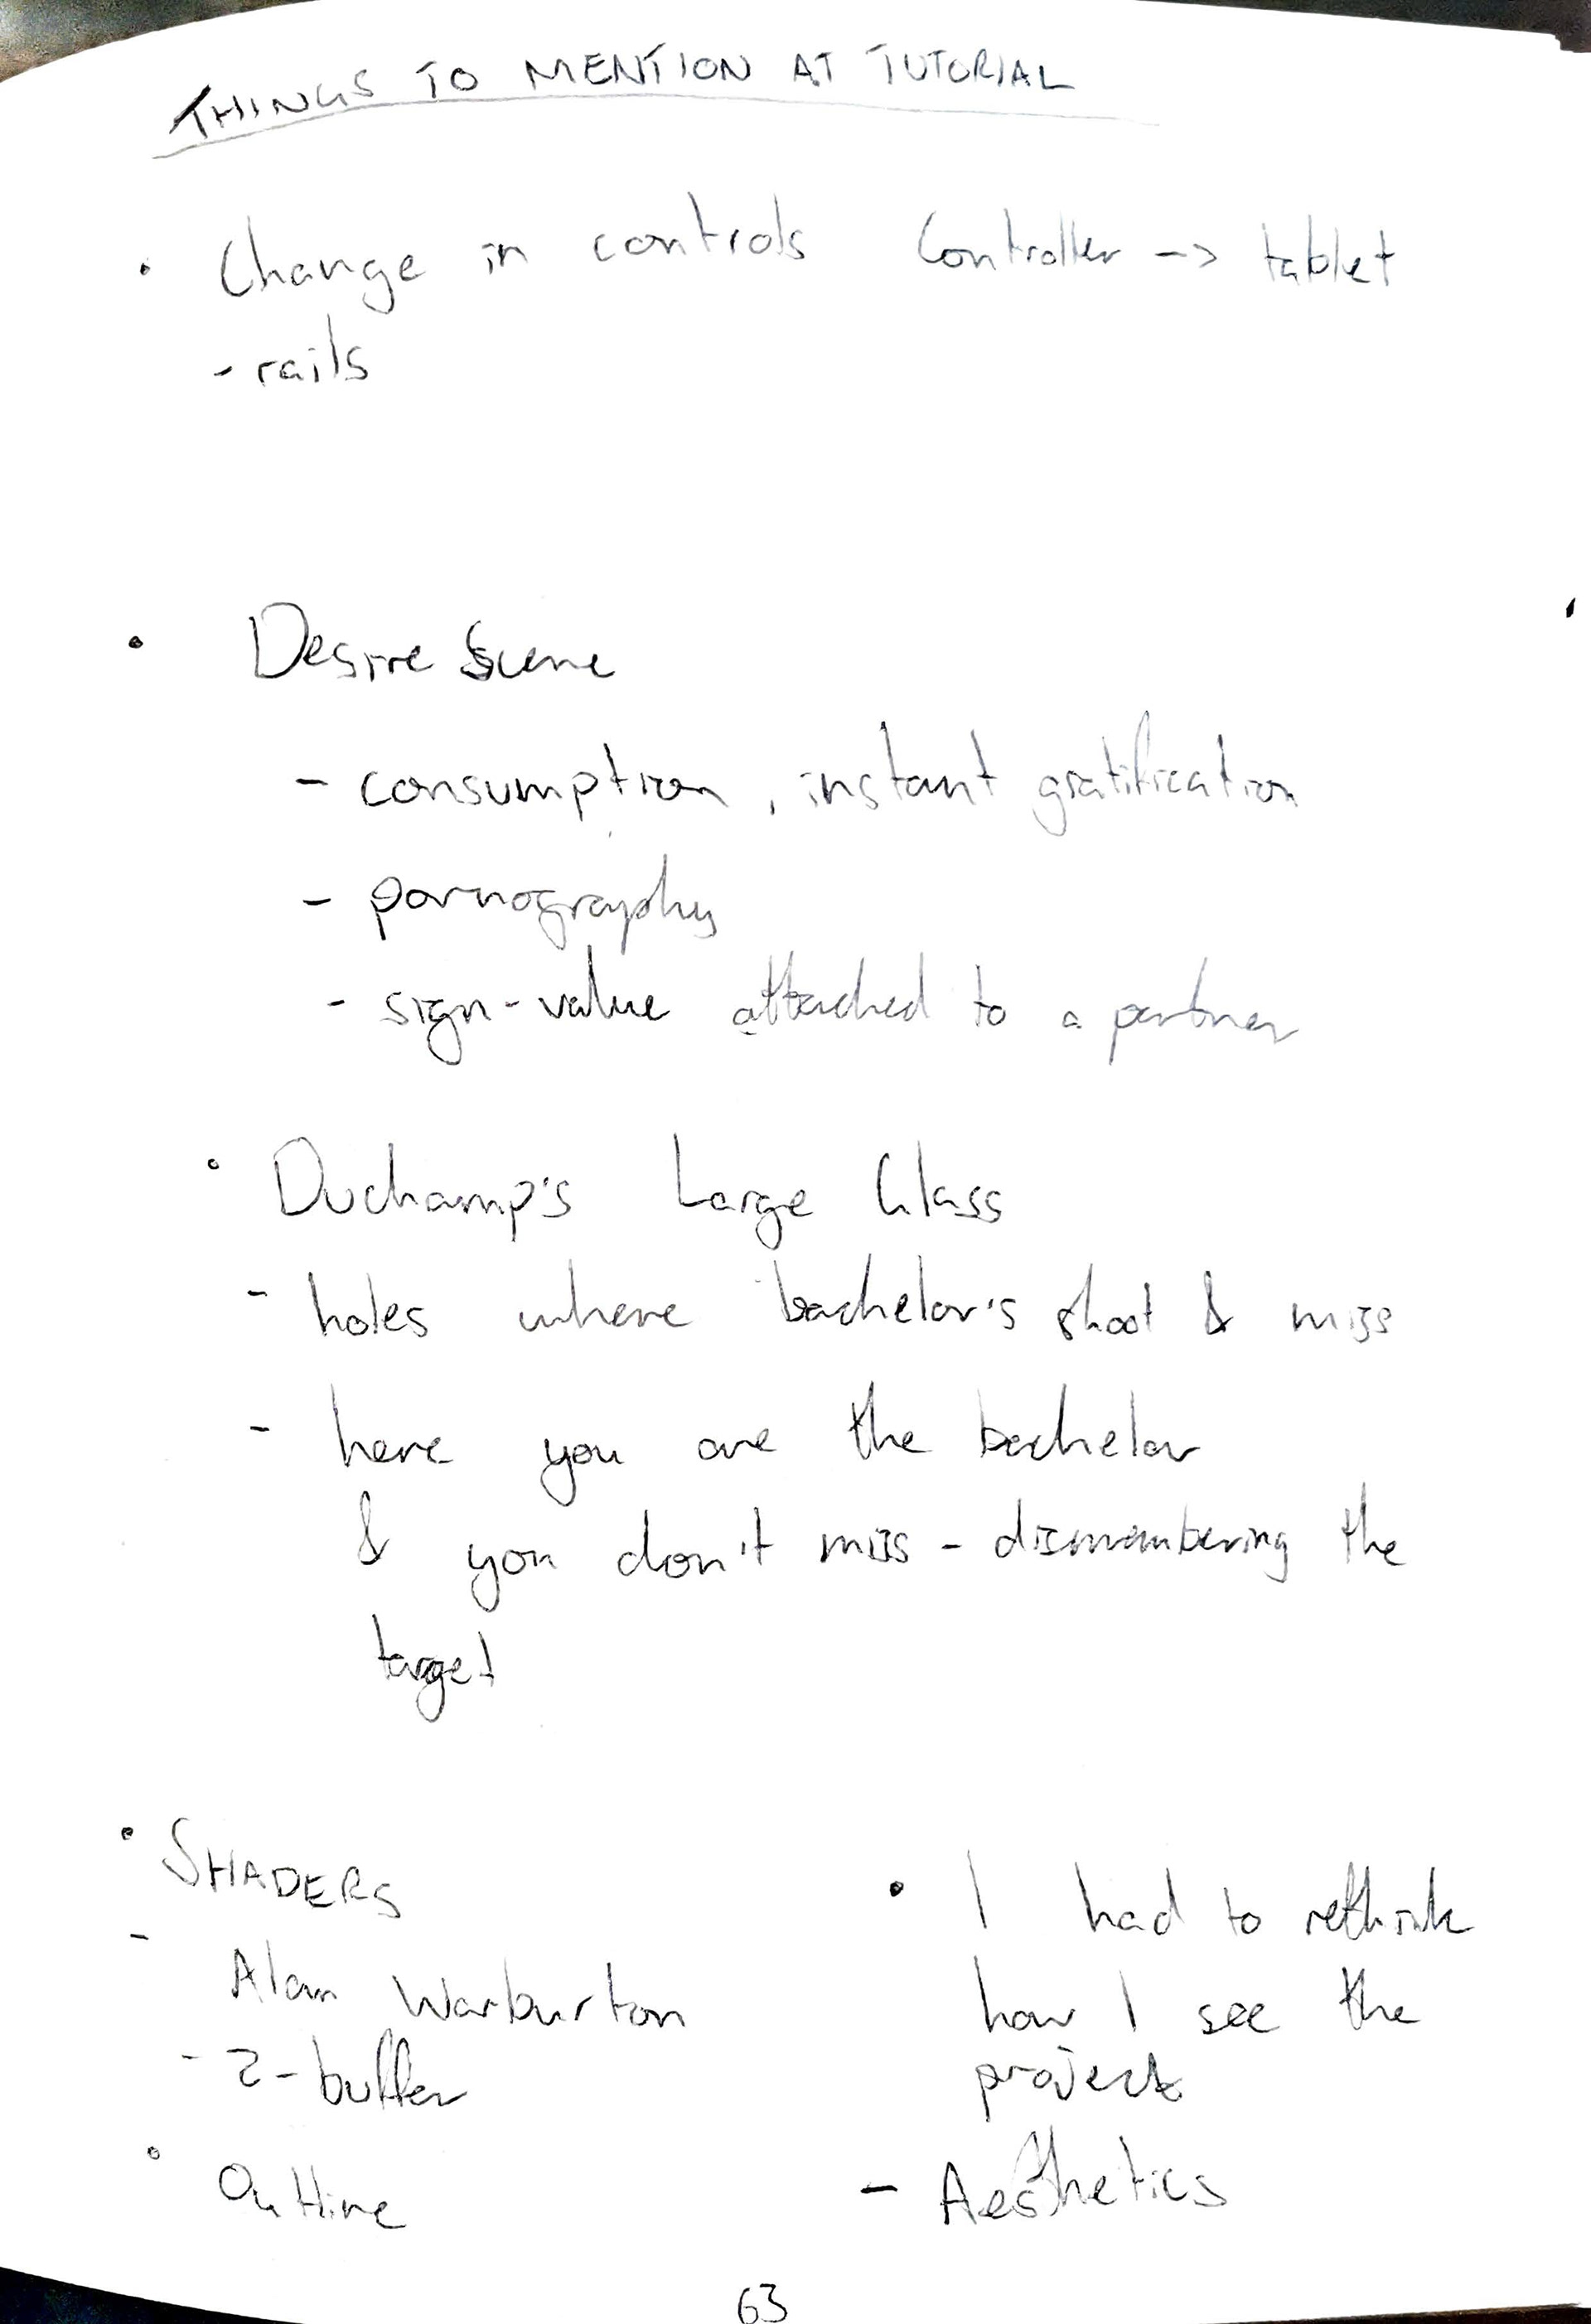 THINGS TO MENTION AT TUTORIAL
• Change in controls Controller -> tablet
- rails
• Desire Scene
- consumption, instant gratification
- pornography
- sign-value attached to a partner
• Duchamp's Large Glass
- holes where bachelor's shoot & miss
- here you are the bachelor
& you don't miss - dismembering the
target
• SHADERS
- Alan Warburton
- Z-buffer
• Outline
• I had to rethink
how I see the
project
- Aesthetics
63